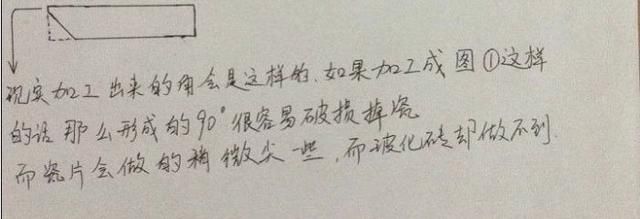 现实加工出来的角会是这样的.如果加工成图①这样
的话那么形成的90°很容易破损掉瓷
而瓷片会做的稍微尖一些,而玻化砖却做不到.